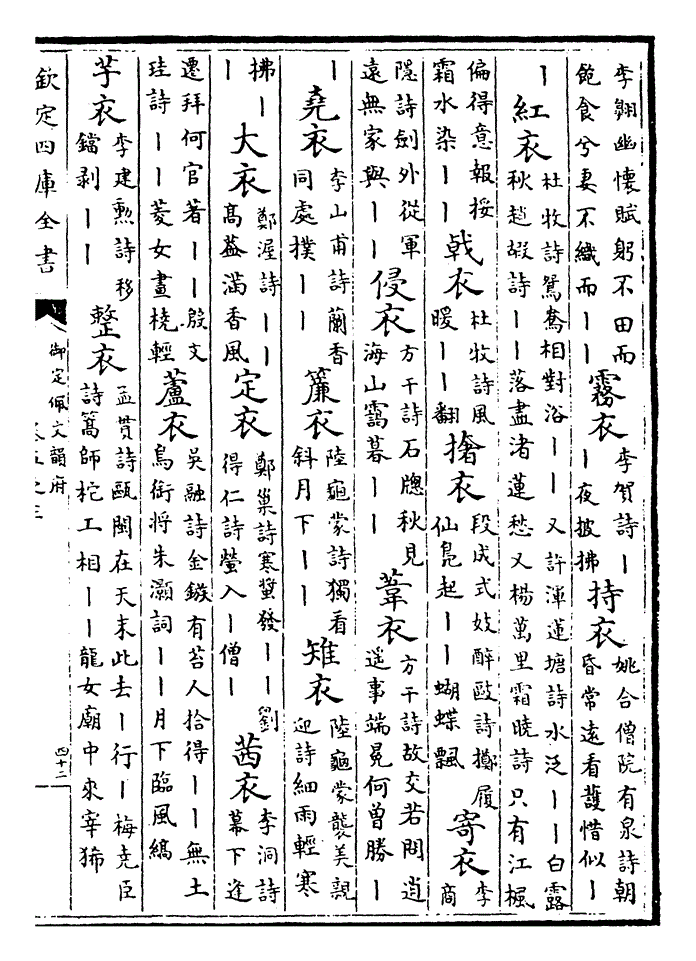 李翱幽懷賦躬不田而
飽食兮妻不織而丨丨
霧衣
李賀詩丨
丨夜披拂
持衣
姚合僧院有泉詩朝
昏常遠看護惜似丨
丨
紅衣
杜牧詩鴛鴦相對浴丨丨又許渾蓮塘詩水泛丨丨白露
秋趙嘏詩丨丨落盡渚蓮愁又楊萬里霜曉詩只有江楓
偏得意報挼
霜水染丨丨
戟衣
杜牧詩風
暖丨丨翻
搶衣
段成式妓醉毆詩擲履
仙鳧起丨丨蝴蝶飄
寄衣
李
商
隱詩劍外從軍
遠無家與丨丨
侵衣
方干詩石牕秋見
海山靄暮丨丨
葦衣
方干詩故交若問逍
遙事端冕何曾勝丨
丨
堯衣
李山甫詩蘭香
同處撲丨丨
簾衣
陸龜蒙詩獨看
斜月下丨丨
雉衣
陸龜蒙襲美親
迎詩細雨輕寒
拂丨
丨
大衣
鄭渥詩丨丨
高蓋滿香風
定衣
鄭巢詩寒蛩發丨丨劉
得仁詩螢入丨僧丨
茜衣
李洞詩
幕下逢
遷拜何官著丨丨殷文
珪詩丨丨菱女畫橈輕
蘆衣
吳融詩金鏃有苔人拾得丨丨無土
鳥銜將朱灝詞丨丨月下臨風縞
芋衣
李建勲詩移
鐺剥丨丨
整衣
孟貫詩甌閩在天末此去丨行丨梅堯臣
詩篙師柁工相丨丨龍女廟中來宰狶
欽定四庫全書
御定佩文韻府
四十二